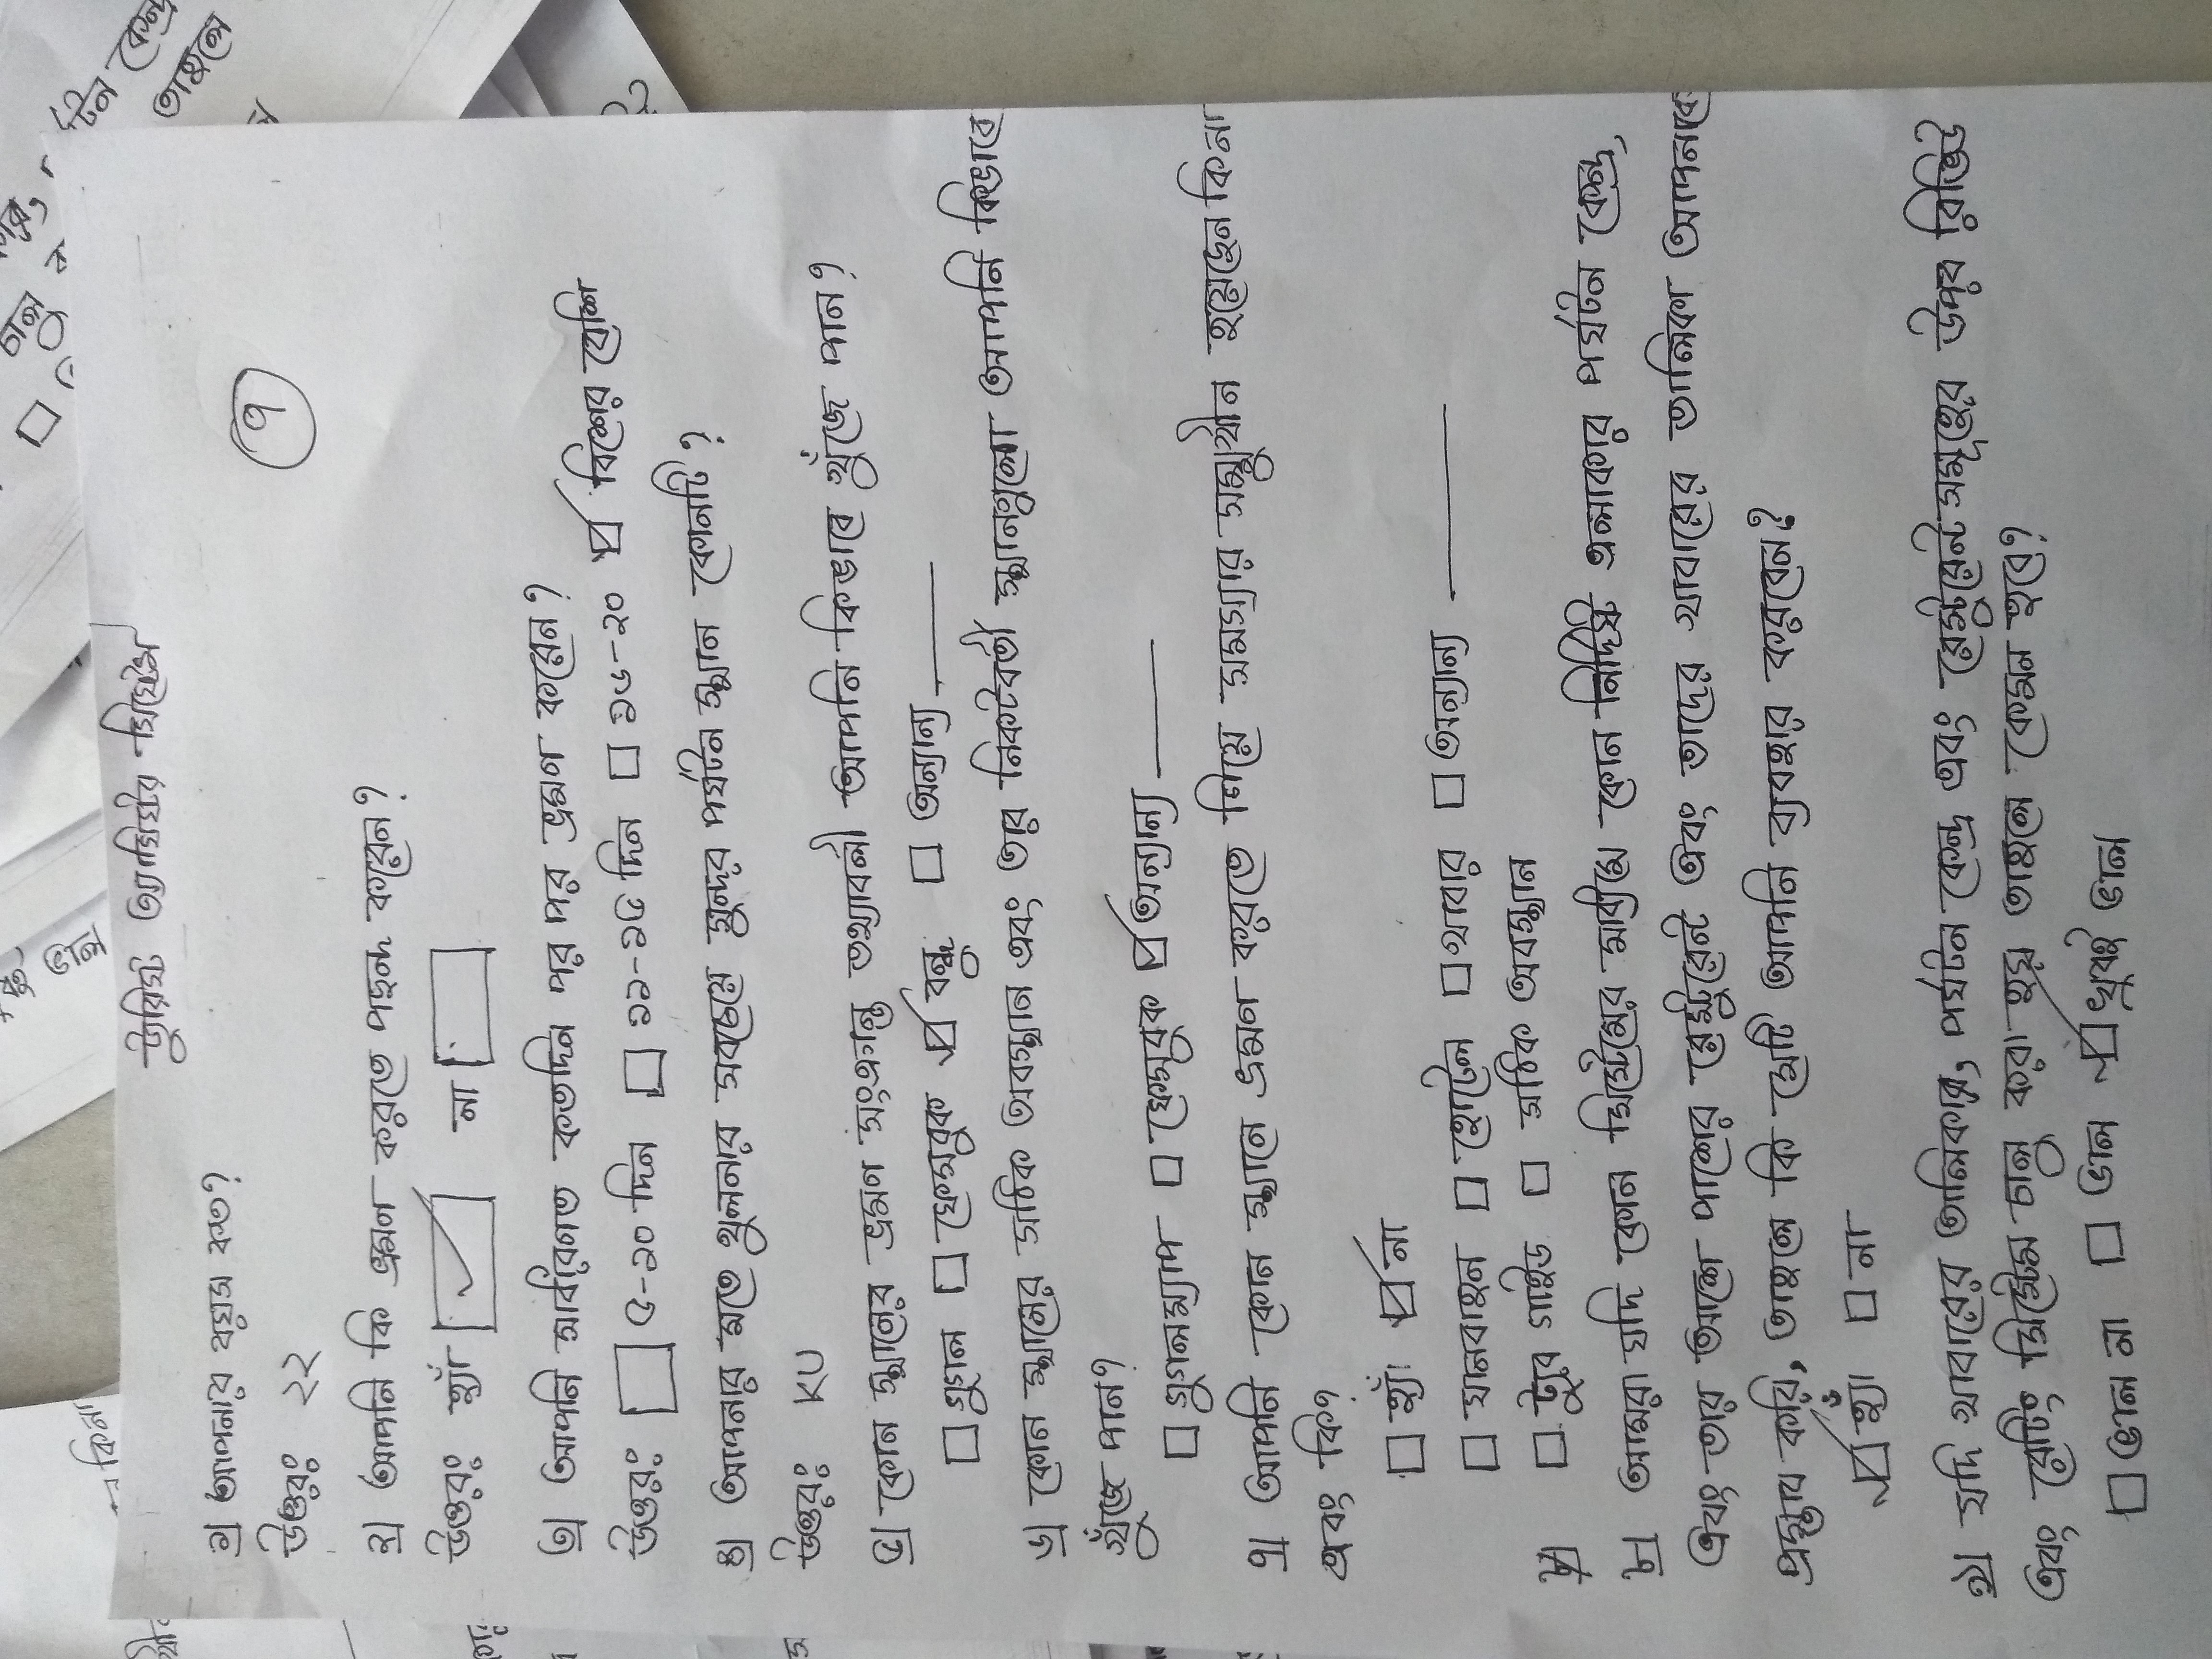 ট্যুরিস্ট অ্যাসিস্ট সিস্টেম
৭
১) আপনার বয়স কত?
উত্তরঃ ২২
২) আপনি কি ভ্রমণ করতে পছন্দ করেন?
উত্তরঃ হ্যাঁ না
৩) আপনি সাধারণত কতদিন পর পর ভ্রমণ করেন?
উত্তরঃ ৫-১০ দিন ১১-১৫ দিন ১৬-২০ বিশের বেশি
৪) আপনার মতে খুলনার সবচেয়ে সুন্দর পর্যটন স্থান কোনটি?
উত্তরঃ KU
৫) কোন স্থানের ভ্রমন সংক্রান্ত তথ্যাবলী আপনি কিভাবে খুঁজে পান?
গুগল ফেসবুক বন্ধু অন্যান্য
৬) কোন স্থানের সঠিক অবস্থান এবং তার নিকটবর্তী স্থানগুলো আপনি কিভাবে
খুঁজে পান?
গুগলম্যাপ ফেসবুক অন্যান্য
৭) আপনি কোন স্থানে ভ্রমণ করতে গিয়ে সমস্যার সম্মুখীন হয়েছেন কিনা
এবং কি?
হ্যাঁ না
যানবাহন হোটেল খাবার অন্যান্য
ট্যুর গাইড সঠিক অবস্থান
৮) আমরা যদি কোন সিস্টেমের মাধ্যমে কোন নির্দিষ্ট এলাকার পর্যটন কেন্দ্র,
এবং তার আশে পাশের রেস্টুরেন্ট এবং তাদের খাবারের তালিকা আপনাকে
প্রস্তাব করি, তাহলে কি সেটি আপনি ব্যবহার করবেন?
হ্যাঁ না
৯) যদি খাবারের তালিকায়, পর্যটন কেন্দ্র এবং রেস্টুরেন্টসমূহের উপর রিভিউ
এবং রেটিং সিস্টেম চালু করা হয় তাহলে কেমন হবে?
ভাল না ভাল খুবই ভাল